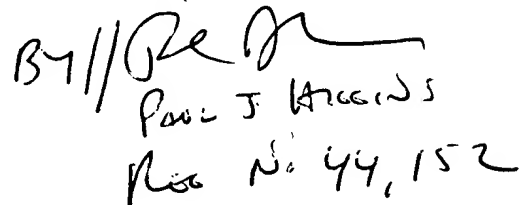 By //
PAUL J HIGGINS
REG No 44,152